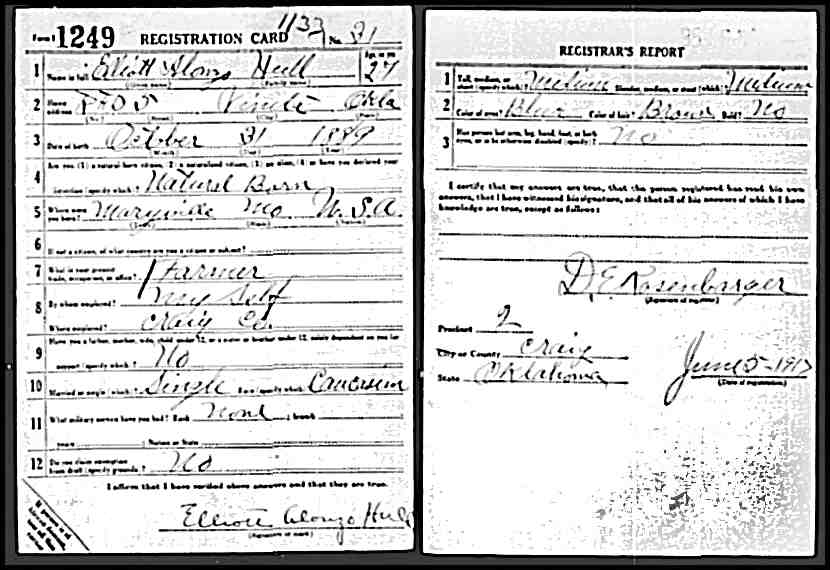 Form 1 1249 REGISTRATION CARD 1133 No. 31
1 Name in full Elliott Alonzo Hull
(Given name) (Family name)
Age, in yrs. 27
2 Home address RFD 5 Vinita Okla
(No.) (Street) (City) (State)
3 Date of birth October 31 1889
(Month) (Day) (Year)
Are you (1) a natural born citizen, (2) a naturalized citizen, (3) an alien, (4) or have you declared your
4 intention (specify which)? Natural Born
5 Where were you born? Maryville Mo U.S.A.
(Town) (State) (Nation)
6 If not a citizen, of what country are you a citizen or subject?
7 What is your present trade, occupation, or office? Farmer
8 By whom employed? My Self
Where employed? Craig Co.
Have you a father, mother, wife, child under 12, or a sister or brother under 12, solely dependent on you for
9 support (specify which)? No
10 Married or single (which)? Single Race (specify which)? Caucasian
11 What military service have you had? Rank None ; branch
years ; Nation or State
12 Do you claim exemption from draft (specify grounds)? No
I affirm that I have verified above answers and that they are true.
Elliott Alonzo Hull
(Signature or mark)
REGISTRAR'S REPORT
1 Tall, medium, or short (specify which)? Medium Slender, medium, or stout (which)? Medium
2 Color of eyes? Blue Color of hair? Brown Bald? No
3 Has person lost arm, leg, hand, foot, or both eyes, or is he otherwise disabled (specify)? No
I certify that my answers are true, that the person registered has read his own
answers, that I have witnessed his signature, and that all of his answers of which I have
knowledge are true, except as follows:
D.E. Rosenbarger
(Signature of registrar)
Precinct 2
City or County Craig
State Oklahoma
June 5-1917
(Date of registration)